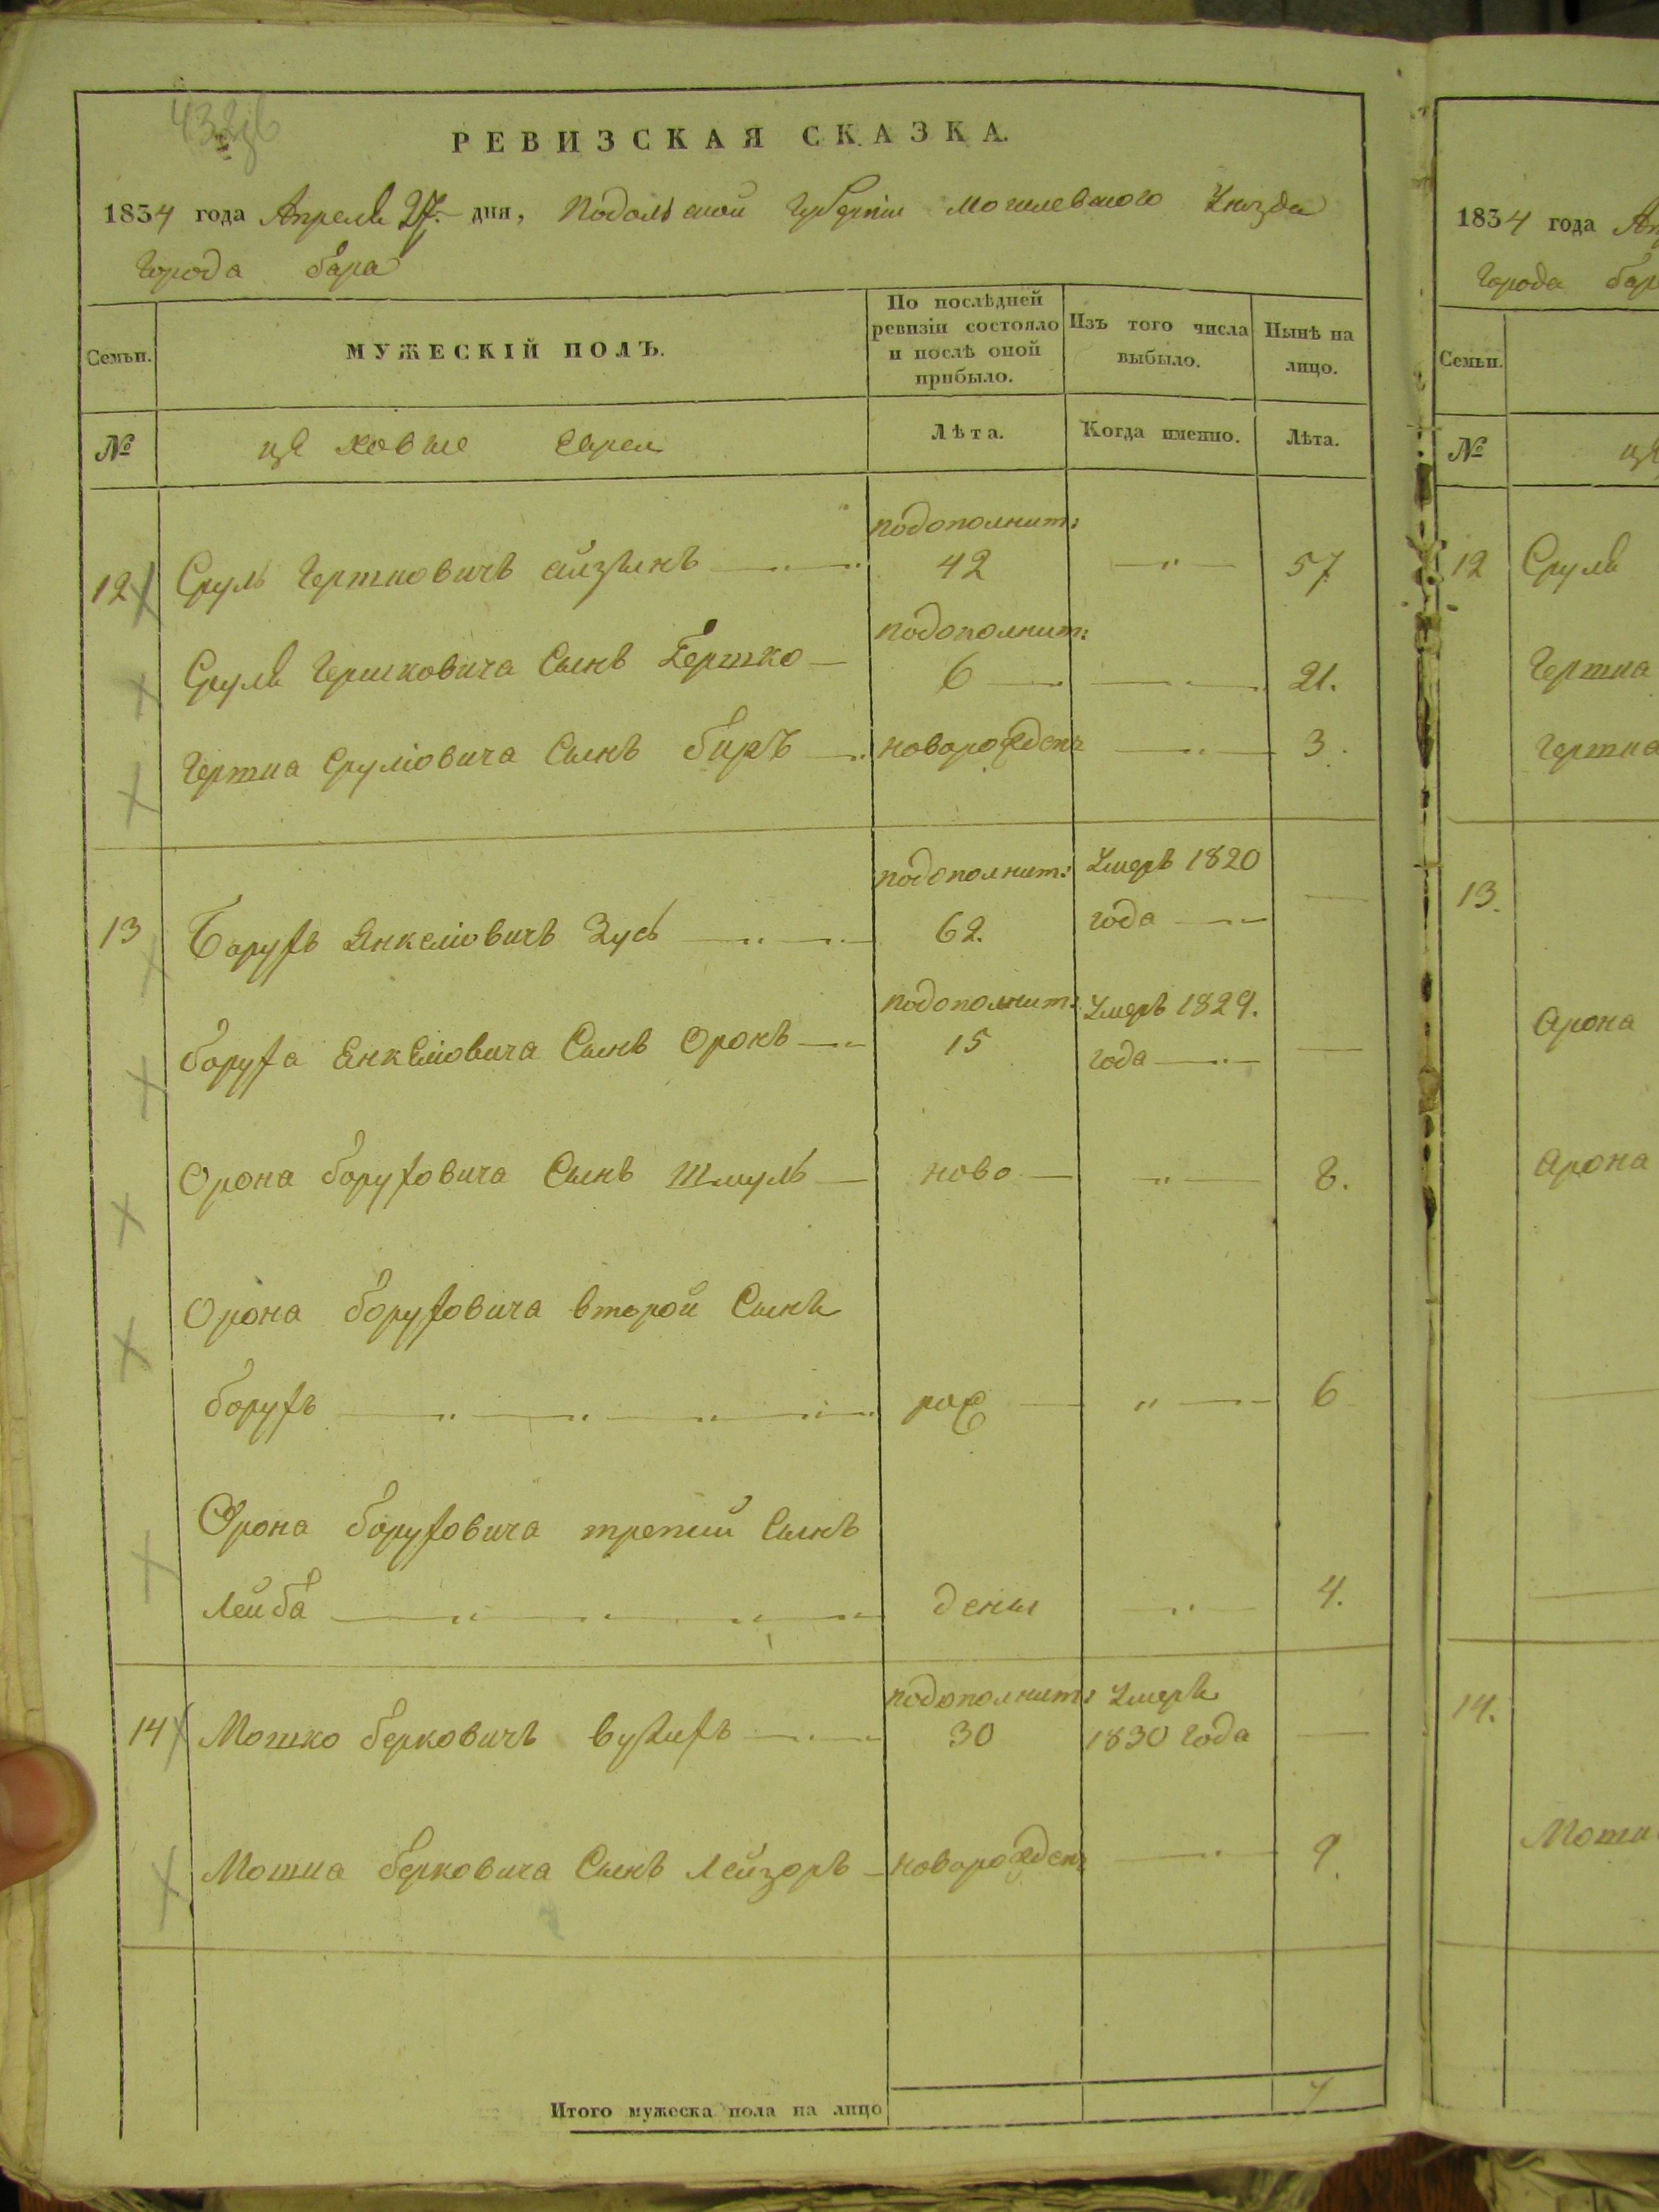 РЕВИЗСКАЯ СКАЗКА.
1834 года Апреля 27 дня, Подольской Губерніи Могилевского Уезда
Города бара
Семьи.
МУЖЕСКІЙ ПОЛЪ.
По послѣдней
ревизіи состояло
и послѣ оной
прибыло.
Изъ того числа
выбыло.
Нынѣ на
лицо.
№
цѣховые Евреи
Лѣта.
Когда именно.
Лѣта.
подополнит:
12 Сруль Гершковичъ айзыкъ 42 57
подополнит:
Сруля Гершковича Сынъ Гершко 6 21.
Гершка Сруліовича Сынъ биръ новорожден 3.
подополнит: Умеръ 1820
13 Борухъ Янкеліовичъ Зусь 62. года
подополнит: Умеръ 1829.
боруха Янкеліовича Сынъ Оронъ 15 года
Орона боруховича Сынъ Шмуль ново 8.
Орона боруховича второй Сынъ
борухъ рож 6
Орона боруховича третий Сынъ
Лейба дены 4.
подополнит: Умеръ
14 Мошко берковичъ 30 1830 года
Мошка берковича Сынъ Лейзоръ новорожден 9.
Итого мужеска пола на лицо 7
1834 года
Города бар
Семьи.
№
12 Сруля
Гершка
Гершка
13.
Арона
Арона
14.
Мошк